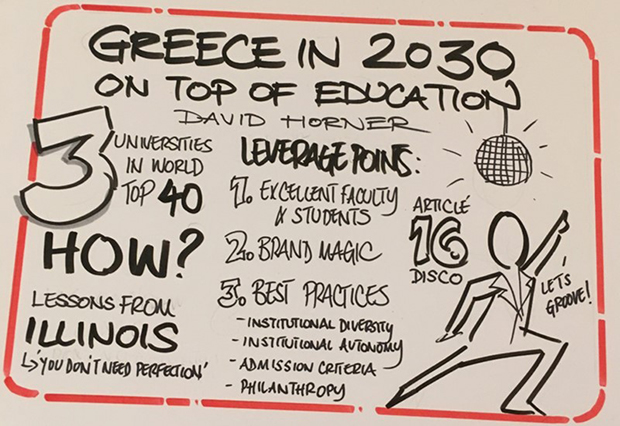 GREECE IN 2030
ON TOP OF EDUCATION
DAVID HORNER
3 UNIVERSITIES
IN WORLD
TOP 40
HOW?
LESSONS FROM
ILLINOIS
'YOU DON'T NEED PERFECTION'
LEVERAGE POINS:
1. EXCELLENT FACULTY
& STUDENTS
2. BRAND MAGIC
3. BEST PRACTICES
- INSTITUTIONAL DIVERSITY
- INSTITUTIONAL AUTONOMY
- ADMISSION CRITERIA
- PHILANTHROPY
ARTICLE
16
DISCO
LET'S
GROOVE!